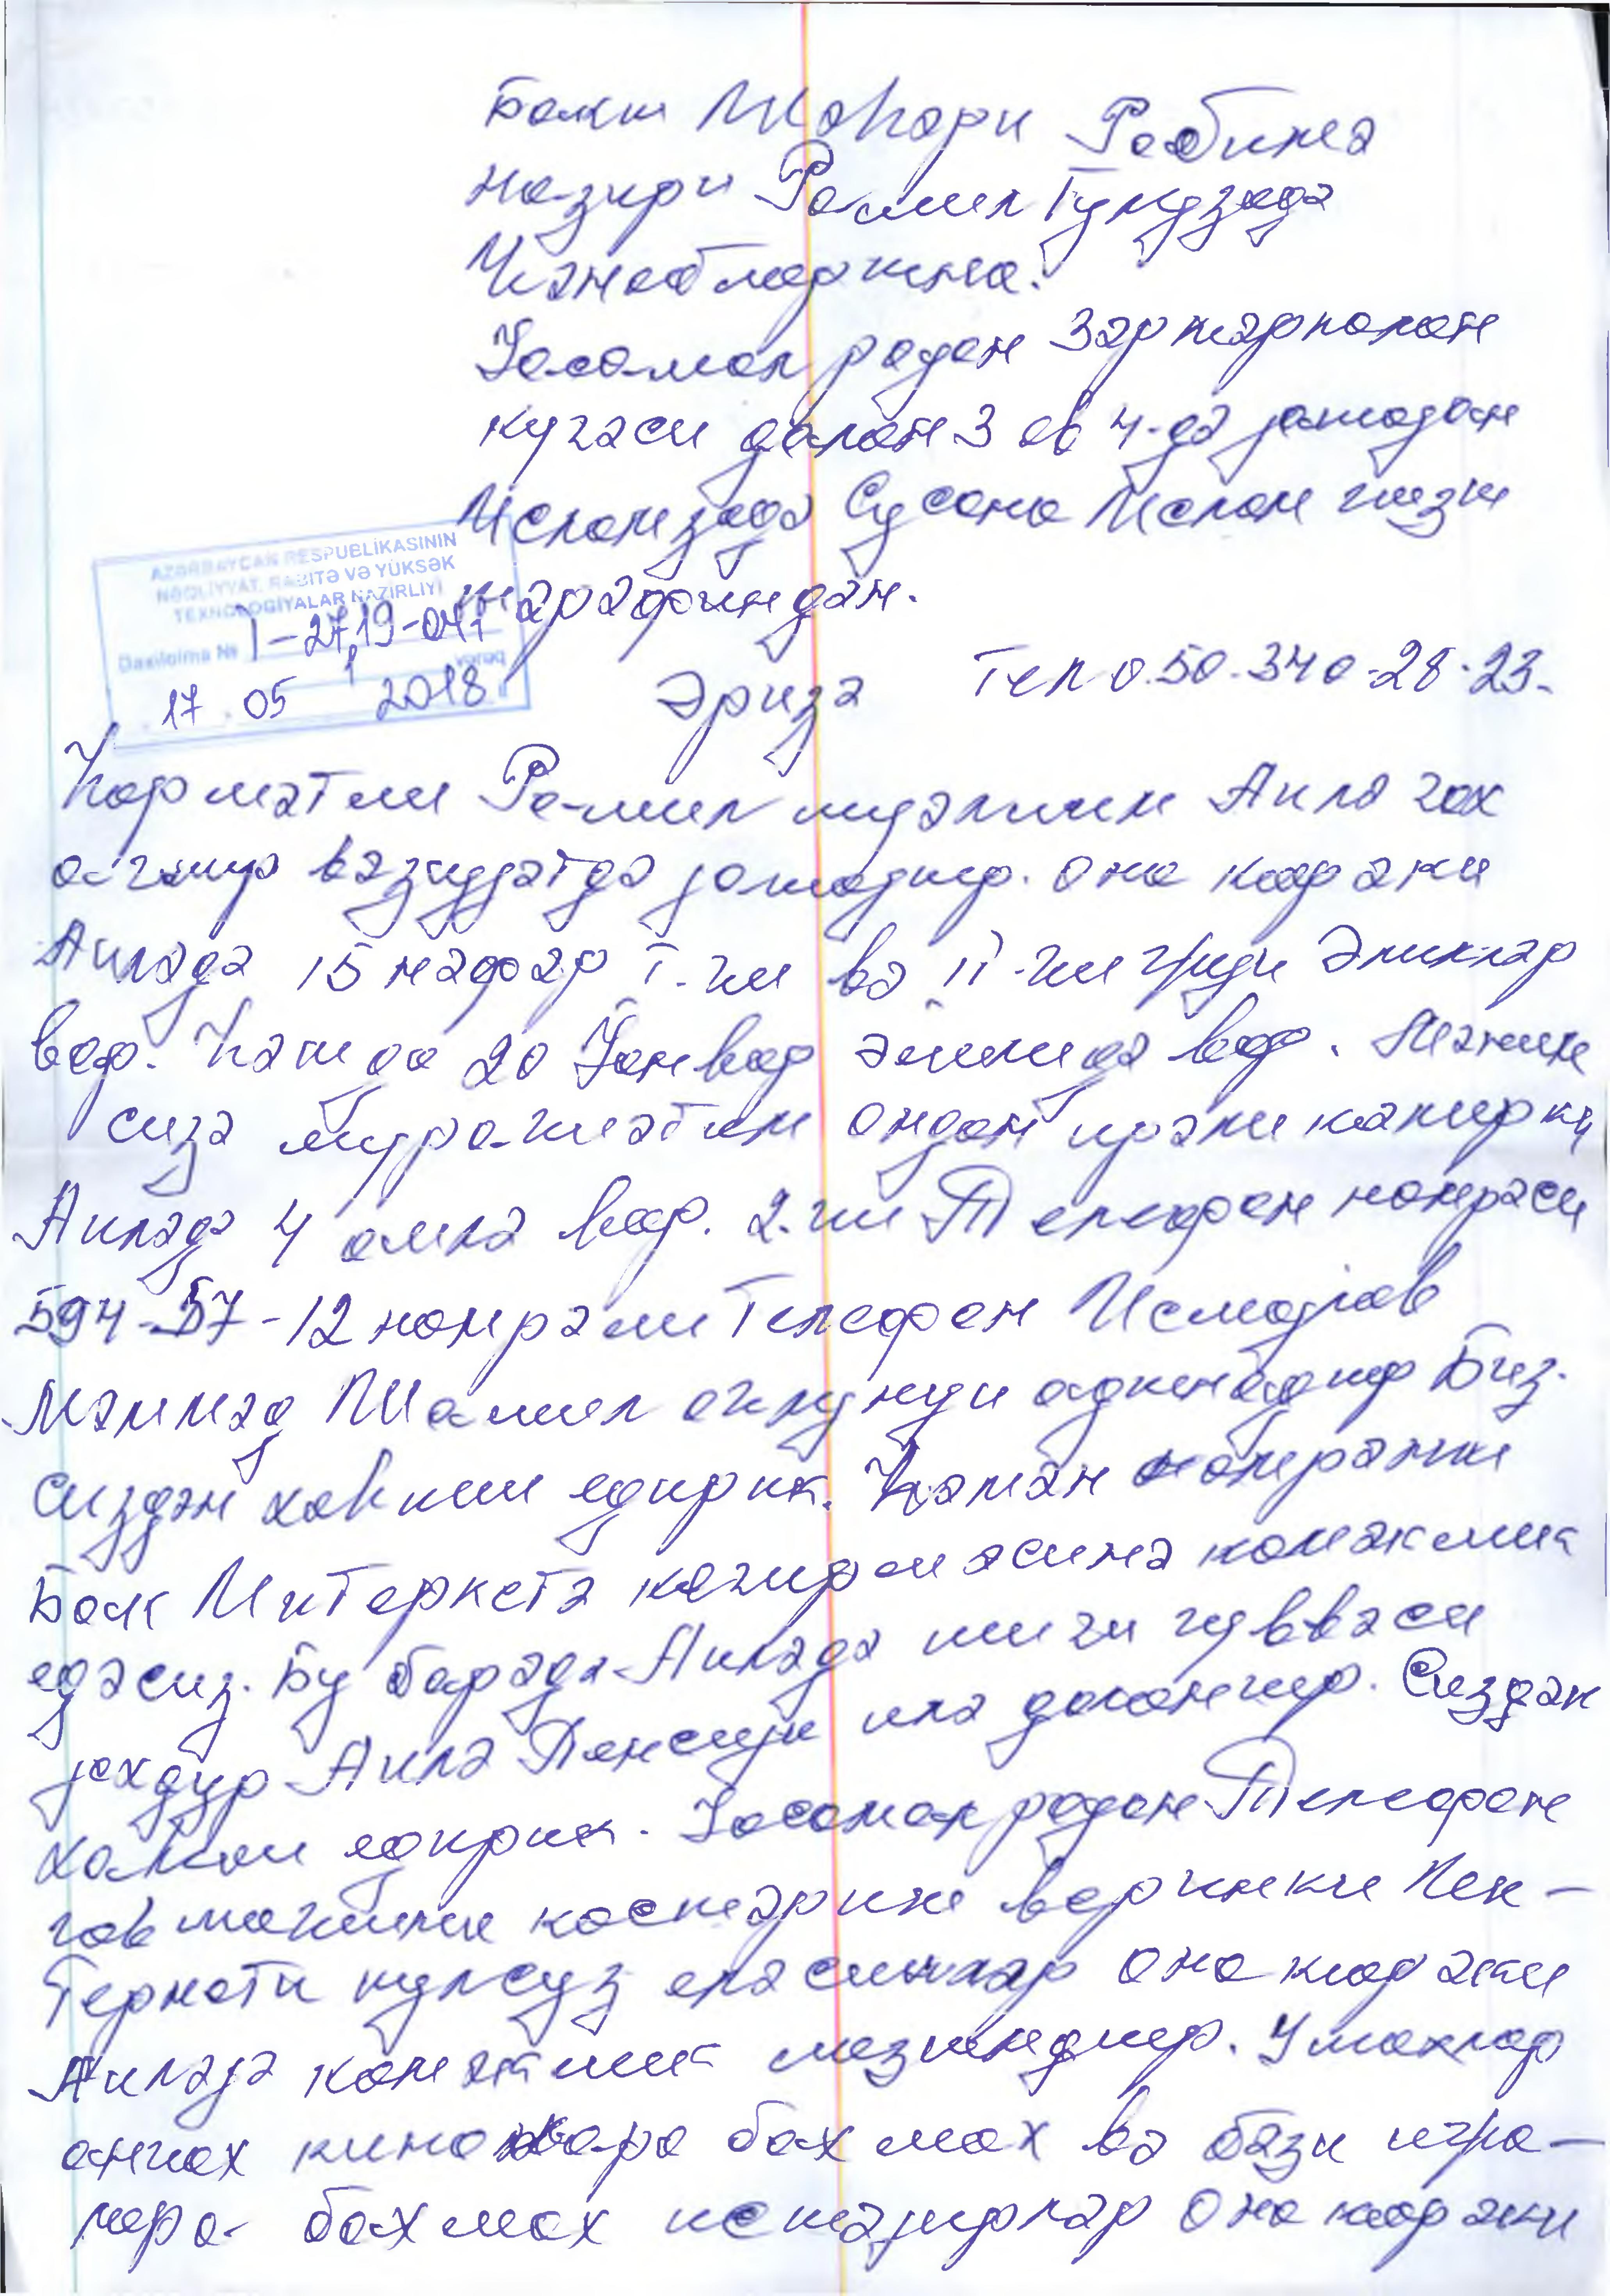 Бакы Шәһәри Рабитә
Назири Рамил Гулузадә
Ҹәнабларына.
Јасамал радон Зәркәрпалан
күчәси далан 3 ев 4-дә јашајан
Исламзадә Сусана Ислам гызы
тәрәфиндән.
AZƏRBAYCAN RESPUBLİKASININ
NƏQLİYYAT, RABİTƏ VƏ YÜKSƏK
TEXNOLOGİYALAR NAZİRLİYİ
Daxilolma № 1-27,19-04/
vərəq
17 . 05 2018
Әризә Тел 0.50-340-28-23.
Һөрмәтли Рамил мүәллим Аилә чох
ағыр вәзијјәтдә јашајыр. Она көрәки
Аиләдә 15 нәфәр I-чи вә II-чи групп Әлилләр
вар. Һәтда 20 Јанвар әлилидә вар. Мәним
сизә мурачиәтим ондан ирәли кәлирки
Аиләдә 4 аилә вар. 2.чи Телефон номрәси
594-57-12 номрәли Телефон Исмајлов
Мәммәд Шамил оғлунун адынадыр Биз.
Сиздән хаһиш едирик. Һәмән номрәни
Бак Интернетә кечирмәсинә көмәклик
едәсиз. Бу барәдә Аиләдә ишчи гуввәси
јохдур Аилә Пенсија илә доланыр. Сиздән
хаһиш едирик. Јасамал радон Телефон
говшағына көстәриш веринки Ин-
Тернети пулсуз еләсинләр Она көрәки
Аиләјә көмәклик лазымдыр. Ушахлар
анчах кинолара бахмах вә бәзи игра-
лара бахмах истәјирләр Она көрәки